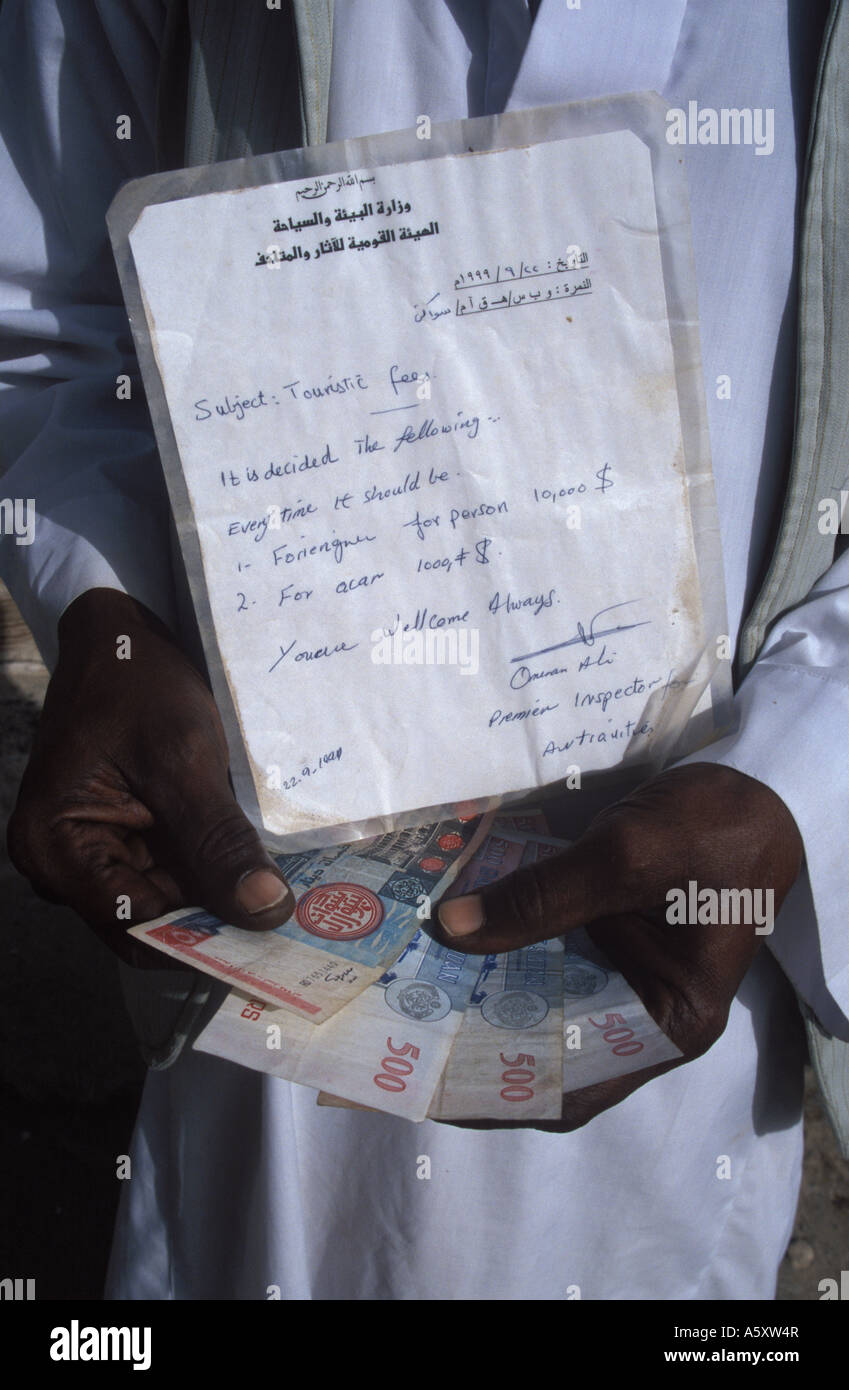 بسم الله الرحمن الرحيم
وزارة البيئة والسياحة
الهيئة القومية للآثار والمتاحف
التاريخ : ٢٢ / ٩ / ١٩٩٩م
النمرة : و ب س/هـ ق آ م/ سواكن
Subject: Touristic fees.
It is decided The fellowing:-
Every time It should be.
1- Foriengner for person 10,000 $
2. For acar 1000,# $.
Youare Wellcome Always.
Omran Ali
Premier Inspector for
Antiquities
22.9.1999
500
500
500
alamy
A5XW4R
www.alamy.com